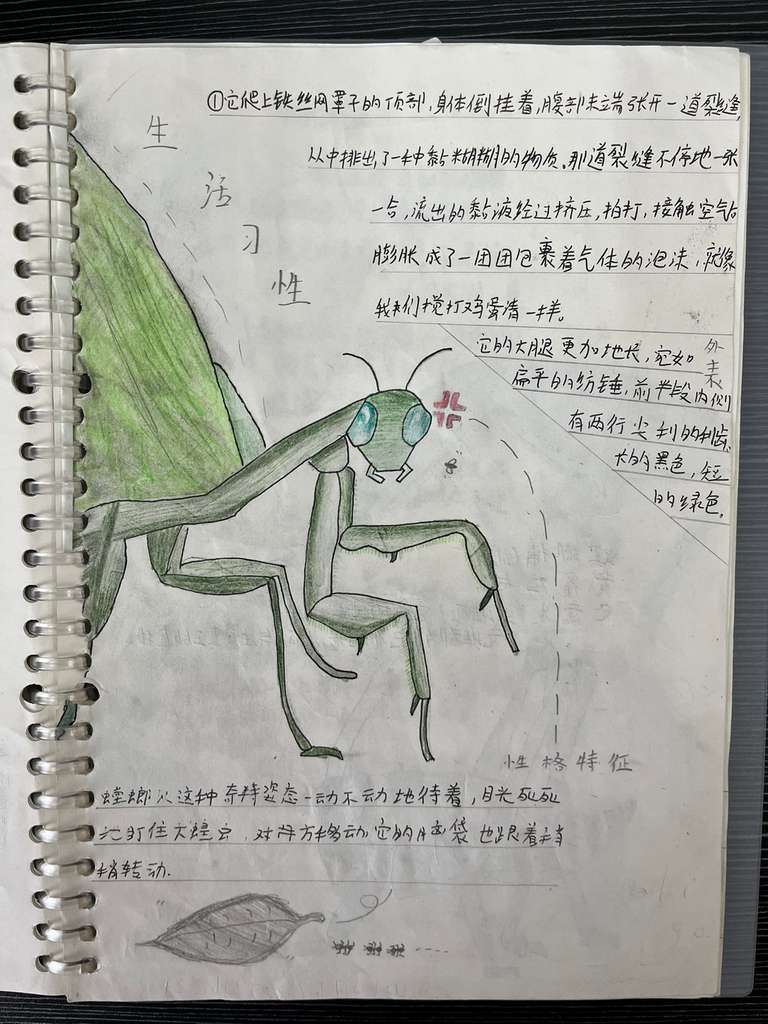 生活习性
①它爬上铁丝网罩子的顶部,身体倒挂着,腹部末端张开一道裂缝,
从中排出了一种黏糊糊的物质.那道裂缝不停地一张
一合,流出的黏液经过挤压,拍打,接触空气后
膨胀成了一团团包裹着气体的泡沫,就像
我们搅打鸡蛋清一样。
外表
它的大腿更加地长,宛如
扁平的纺锤,前半段内侧
有两行尖利的利齿.
大的黑色,短
的绿色.
性格特征
螳螂以这种奇特姿态一动不动地待着,目光死死
地盯住大蝗虫,对方移动,它的脑袋也跟着稍
稍转动.